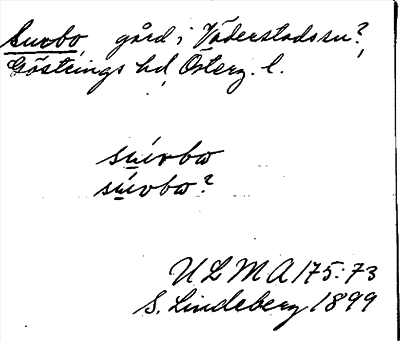 Survbo, gård i Väderstads sn?,
Göstrings hd, Österg. l.
su̱rvbω
su̱rvbω?
ULMA 175:73
S. Lindeberg 1899